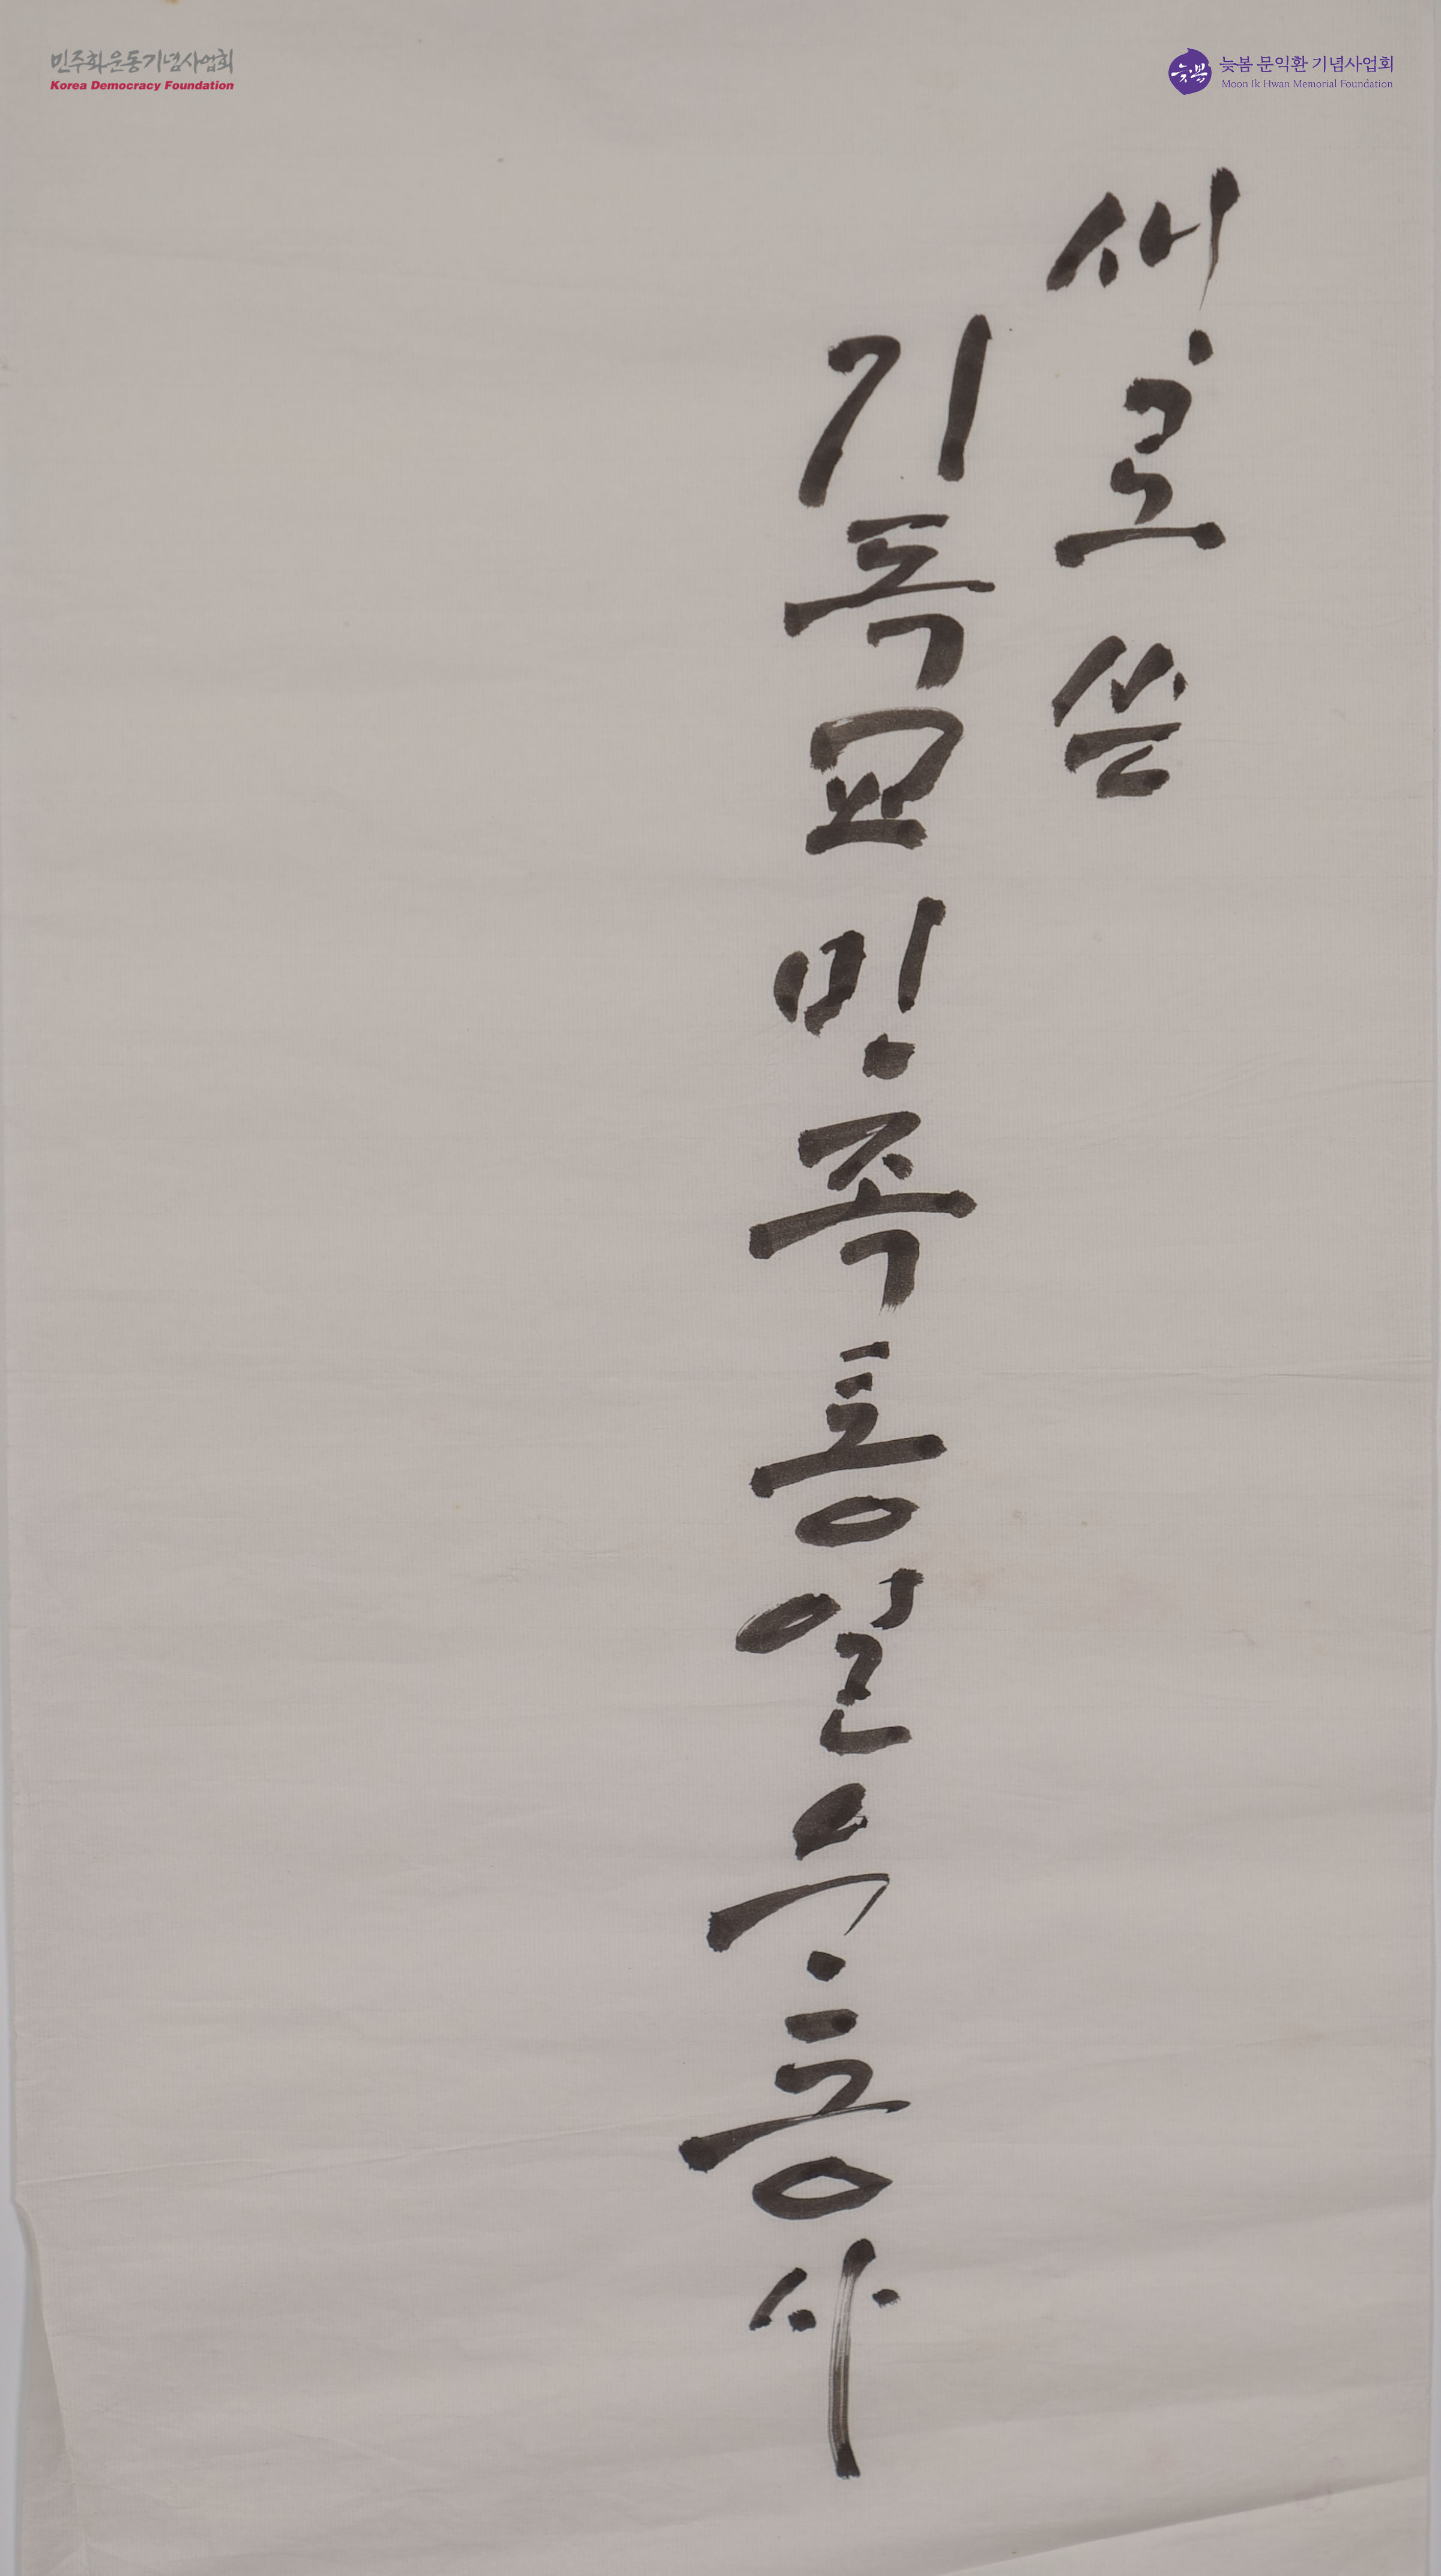 민주화운동기념사업회
Korea Democracy Foundation
늦봄
늦봄 문익환 기념사업회
Moon Ik Hwan Memorial Foundation
새로 쓴
기독교 민족 통일 운동사